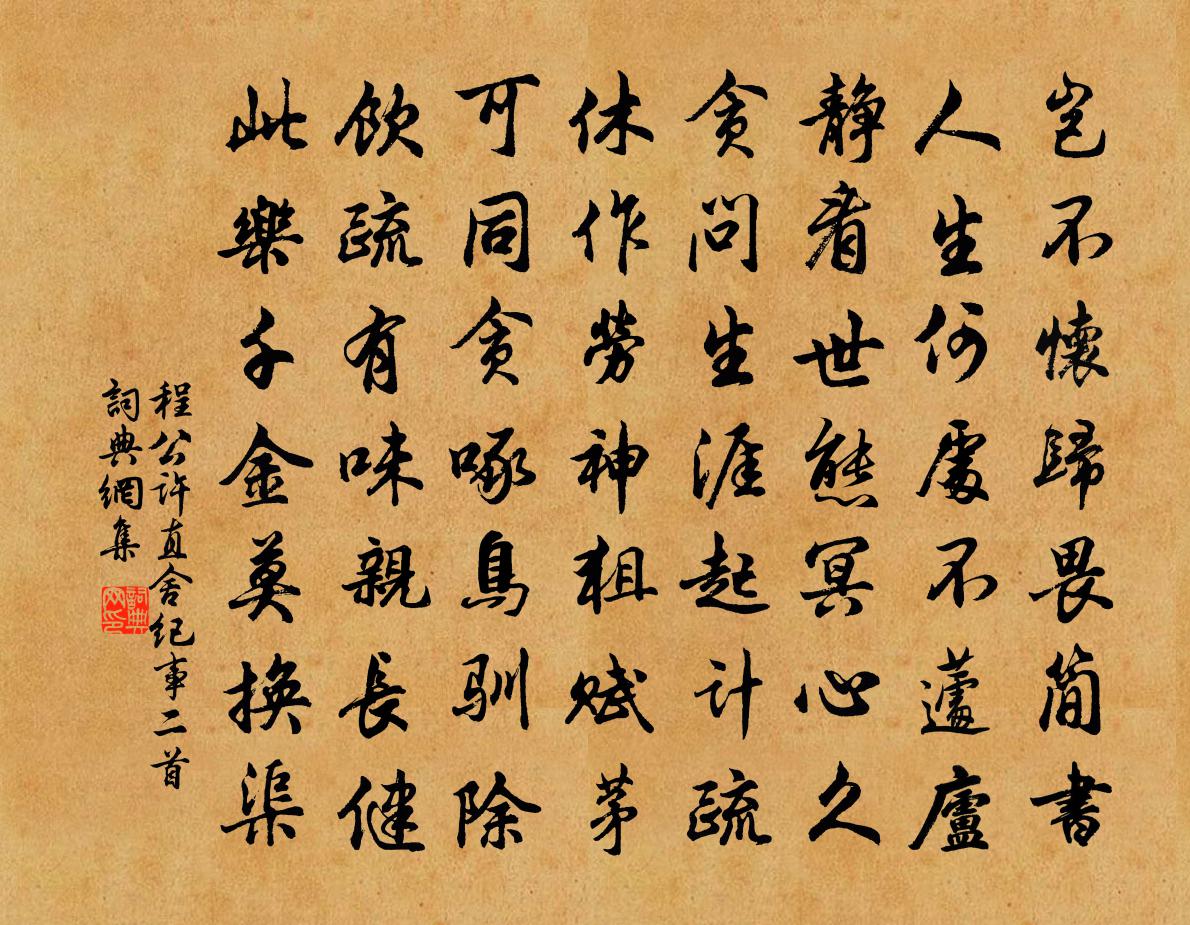 豈不懷歸畏簡書
人生何處不蘧廬
靜看世態冥心久
貪問生涯起計疏
休作勞神狙賦茅
可同貪啄鳥馴除
飲疏有味親長健
此樂千金莫換渠
程公許直舍紀事二首
詞典網集
詞典网印